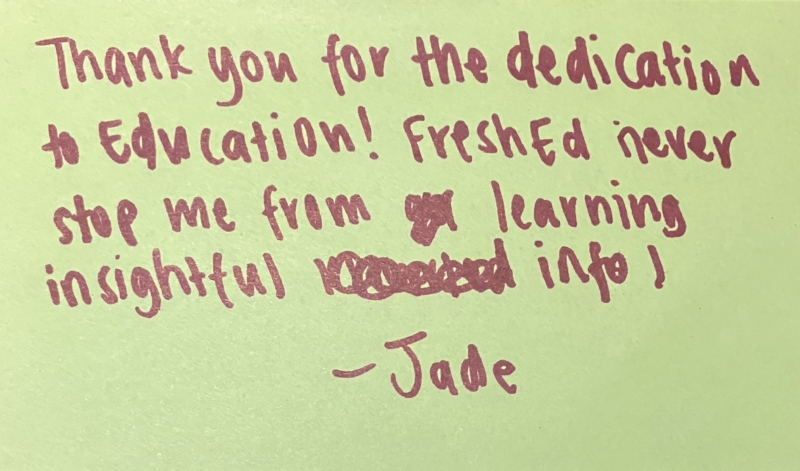 Thank you for the dedication
to Education! FreshEd never
stop me from learning
insightful info!
- Jade